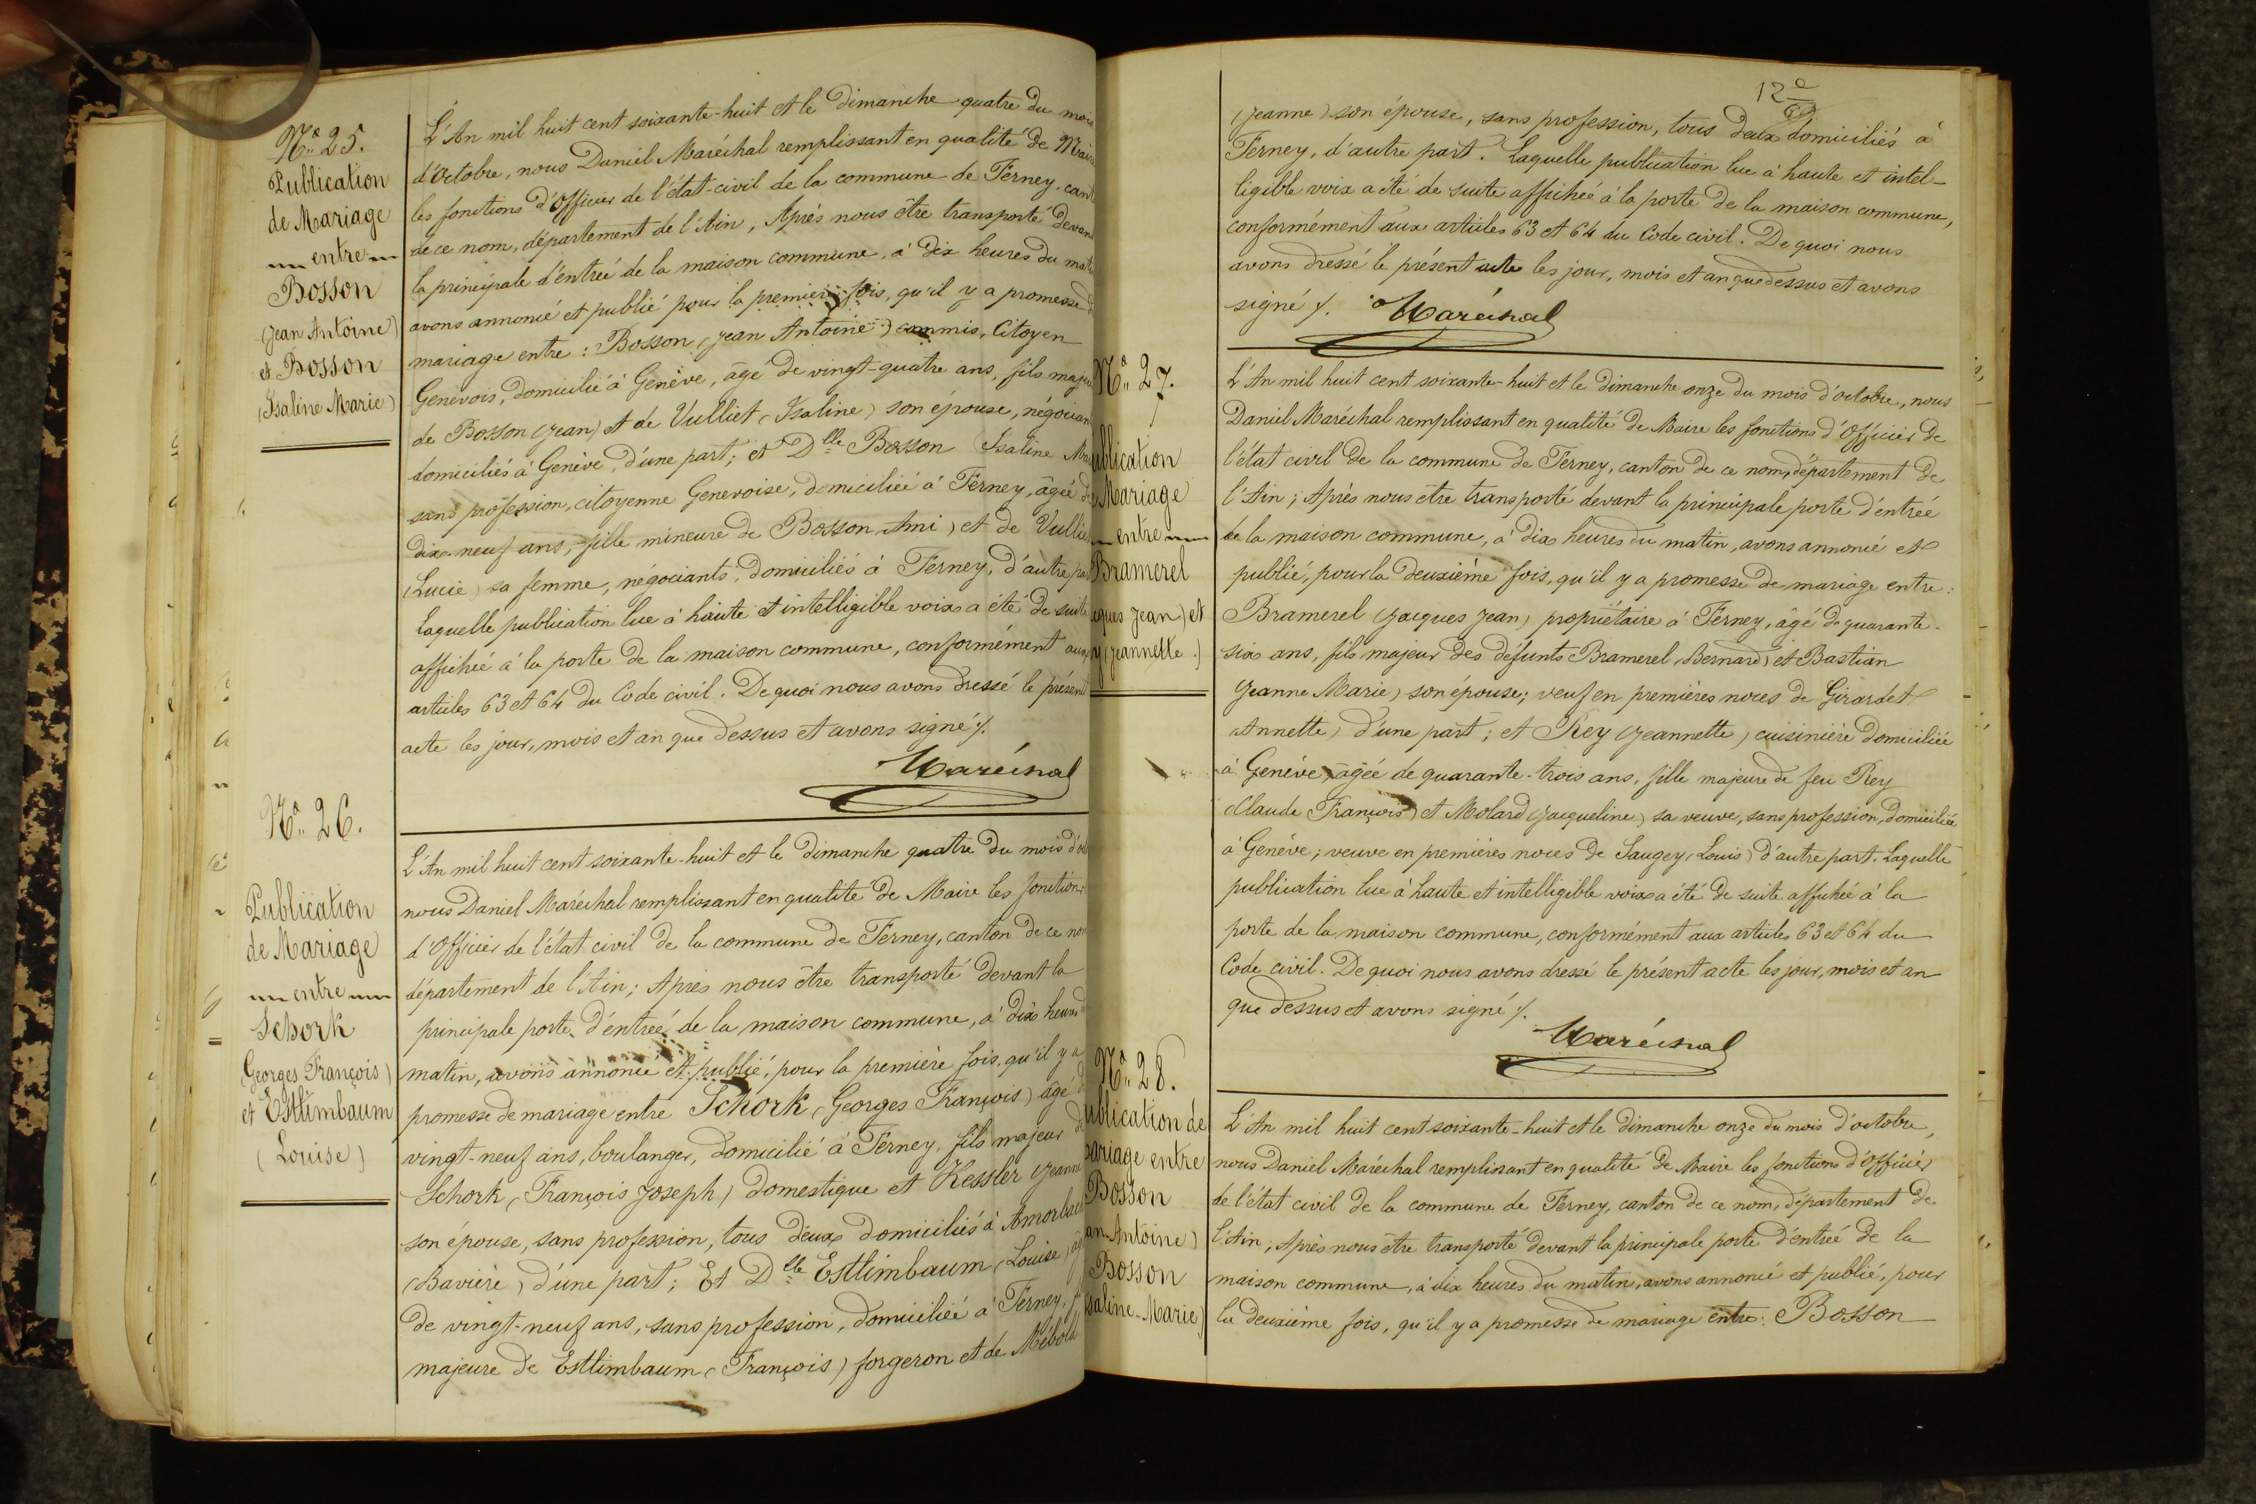 Nº 25.
Publication
de Mariage
entre
Bosson
(Jean Antoine)
et Bosson
(Isaline Marie)
L'An mil huit cent soixante-huit et le dimanche quatre du mois
d'octobre, nous Daniel Maréchal remplissant en qualité de Maire
les fonctions d'Officier de l'état-civil de la commune de Ferney, cant
de ce nom, département de l'Ain, Après nous être transporté devan
la principale d'entrée de la maison commune, à dix heures du mat
avons annoncé et publié pour la première fois, qu'il y a promesse
mariage entre : Bosson (Jean Antoine) commis, Citoyen
Genevois, domicilié à Genève, âgé de vingt-quatre ans, fils maje
de Bosson (Jean) et de Vulliet (Isaline) son épouse, négocian
domiciliés à Genève, d'une part; et Dlle Bosson Isaline Ma
sans profession, citoyenne Genevoise, domiciliée à Ferney, âgée d
dix-neuf ans, fille mineure de Bosson Ami) et de Vullie
(Lucie) sa femme, négociants, domiciliés à Ferney, d'autre pa
Laquelle publication lue à haute et intelligible voix a été de suite
affichée à la porte de la maison commune, conformément aux
articles 63 et 64 du Code civil. De quoi nous avons dressé le présent
acte les jour, mois et an que dessus et avons signé /.
Maréchal
Nº 26.
Publication
de Mariage
entre
Schork
(Georges François)
et Esttimbaum
(Louise)
L'An mil huit cent soixante-huit et le dimanche quatre du mois d'o
nous Daniel Maréchal remplissant en qualité de Maire les fonctions
d'Officier de l'état civil de la commune de Ferney, canton de ce no
département de l'Ain; Après nous être transporté devant la
principale porte d'entrée de la maison commune, à dix heures d
matin, avons annoncé et publié, pour la première fois, qu'il y a
promesse de mariage entre Schork (Georges François) âgé d
vingt-neuf ans, boulanger, domicilié à Ferney, fils majeur d
Schork (François Joseph) domestique et Kessler (Jeanne
son épouse, sans profession, tous deux domiciliés à Amorbac
(Bavière) d'une part; Et Dlle Esttimbaum (Louise) âg
de vingt-neuf ans, sans profession, domiciliée à Ferney, f
majeure de Esttimbaum (François) forgeron et de Mébold
12e
(Jeanne) son épouse, sans profession, tous deux domiciliés à
Ferney, d'autre part. Laquelle publication lue à haute et intel-
ligible voix a été de suite affichée à la porte de la maison commune,
conformément aux articles 63 et 64 du Code civil. De quoi nous
avons dressé le présent acte les jour, mois et an que dessus et avons
signé /. Maréchal
Nº 27.
ublication
Mariage
entre
Bramerel
cques Jean) et
y (Jeannette.)
L'An mil huit cent soixante-huit et le dimanche onze du mois d'octobre, nous
Daniel Maréchal remplissant en qualité de Maire les fonctions d'Officier de
l'état civil de la commune de Ferney, canton de ce nom, département de
l'Ain; Après nous être transporté devant la principale porte d'entrée
de la maison commune, à dix heures du matin, avons annoncé et
publié, pour la deuxième fois, qu'il y a promesse de mariage entre:
Bramerel (Jacques Jean) propriétaire à Ferney, âgé de quarante-
six ans, fils majeur des défunts Bramerel (Bernard) et Bastian
Jeanne Marie) son épouse; veuf en premières noces de Girardet
Annette) d'une part; et Rey (Jeannette) cuisinière domiciliée
à Genève, âgée de quarante-trois ans, fille majeure de feu Rey
(Claude François) et Molard (Jacqueline) sa veuve, sans profession, domiciliée
à Genève; veuve en premières noces de Saugey (Louis) d'autre part. Laquelle
publication lue à haute et intelligible voix a été de suite affichée à la
porte de la maison commune, conformément aux articles 63 et 64 du
Code civil. De quoi nous avons dressé le présent acte les jour, mois et an
que dessus et avons signé /.
Maréchal
Nº 28.
ublication de
ariage entre
Bosson
an-Antoine)
Bosson
saline-Marie)
L'An mil huit cent soixante-huit et le dimanche onze du mois d'octobre,
nous Daniel Maréchal remplissant en qualité de Maire les fonctions d'Officier
de l'état civil de la commune de Ferney, canton de ce nom, département de
l'Ain; Après nous être transporté devant la principale porte d'entrée de la
maison commune, à dix heures du matin, avons annoncé et publié, pour
la deuxième fois, qu'il y a promesse de mariage entre: Bosson